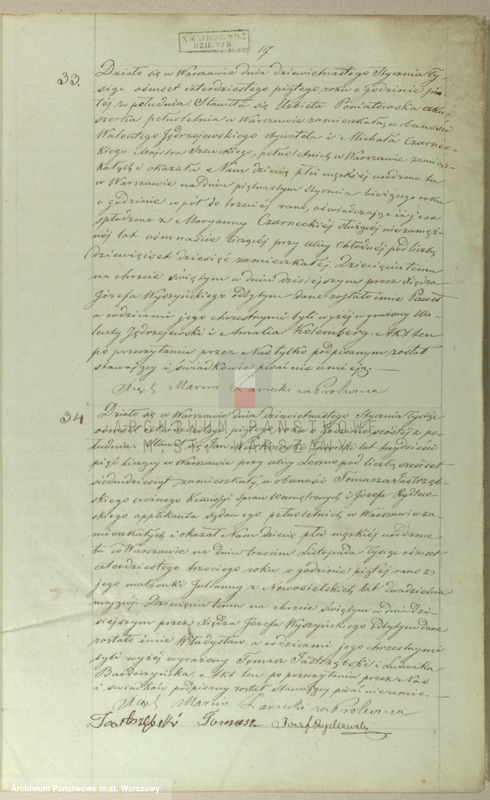 17
33.
Działo się w Warszawie dnia dziewiętnastego Stycznia Ty-
siąc ośmset czterdziestego piątego roku o godzinie pią-
tej z południa. Stawiła się Elżbieta Poniatowska aku-
szerka pełnoletnia w Warszawie zamieszkała, w obecności
Walentego Jędrzejewskiego obywatela i Michała Czarnec-
kiego Majstra Szewskiego, pełnoletnich w Warszawie zamiesz-
kałych i okazała Nam dziecię płci męskiej urodzone tu
w Warszawie na dniu Stycznia bieżącego roku
o godzinie w pół do trzeciej rano, oświadczając iż jest
spłodzone z Maryanny Czarneckiej służącej niezamęż-
nej lat ośmnaście liczącej przy ulicy Chłodnej pod liczbą
dziewięćset dziesięć zamieszkałej. Dziecięciu temu
na chrzcie świętym w dniu dzisiejszym przez Księdza
Józefa Wyszyńskiego odbytym dane zostało imie Paweł
a rodzicami jego chrzestnymi byli wyżej wyrażony Wa-
lenty Jędrzejewski i Amalia Kolemberg. Akt ten
po przeczytaniu przez Nas tylko podpisanym został
stawający i świadkowie pisać nie umieją.
34.
Działo się w Warszawie dnia dziewiętnastego Stycznia Tysiąc
ośmset czterdziestego piątego roku o godzinie szóstej z po-
łudnia. Stawił się Jan lat trzydzieści
pięć liczący w Warszawie przy ulicy Leszno pod liczbą sześćset
siedmdziesiąt zamieszkały, w obecności Tomasza Jastrzęb-
skiego Komissyi Spraw Wewnętrznych i Józefa Rydlew-
skiego applikanta Sądowego pełnoletnich, w Warszawie za-
mieszkałych i okazał Nam dziecię płci męskiej urodzone
tu w Warszawie na dniu trzecim Listopada Tysiąc ośmset
czterdziestego trzeciego roku o godzinie piątej rano z
jego małżonki Julianny z Nowosielskich, lat dwadzieścia
mającej. Dziecięciu temu na chrzcie świętym w dniu dzi-
siejszym przez Księdza Józefa Wyszyńskiego odbytym dane
zostało imie Władysław, a rodzicami jego chrzestnymi
byli wyżej wyrażony Tomasz Jastrzębski i Ludwika
Akt ten po przeczytaniu przez Nas
i świadków podpisany został stawający pisać nie umie.
Jastrzębski Tomasz Józef Rydlewski
ARCHIWUM PAŃSTWOWE
M. ST. WARSZAWY
Archiwum Państwowe m.st. Warszawy